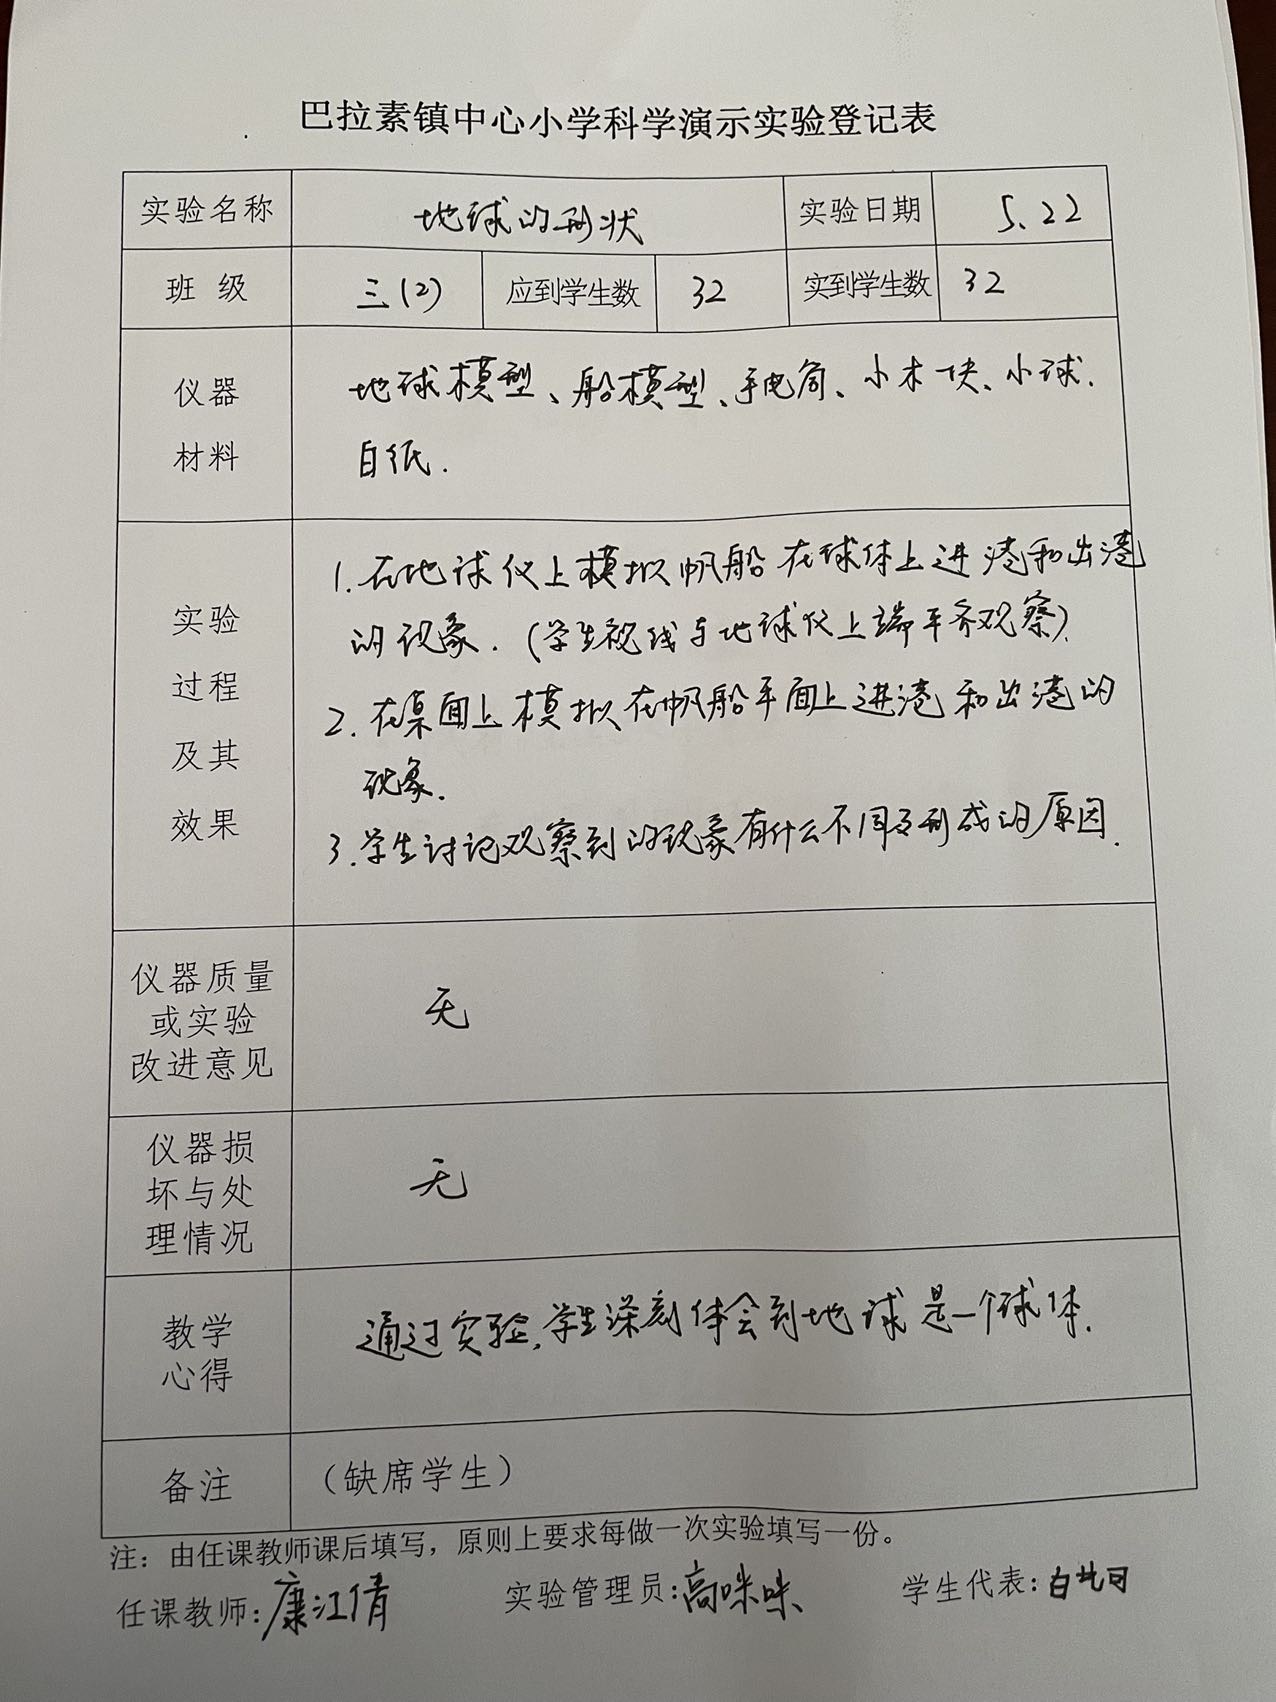 巴拉素镇中心小学科学演示实验登记表
实验名称 地球的形状 实验日期 5.22
班 级 三(2) 应到学生数 32 实到学生数 32
仪器
材料
地球模型、船模型、手电筒、小木块、小球.
白纸.
实验
过程
及其
效果
1.在地球仪上模拟帆船在球体上进港和出港
的现象.(学生视线与地球仪上端平齐观察).
2.在桌面上模拟在帆船平面上进港和出港的
现象.
3.学生讨论观察到的现象有什么不同及形成的原因.
仪器质量
或实验
改进意见
无
仪器损
坏与处
理情况
无
教学
心得
通过实验,学生深刻体会到地球是一个球体.
备注 (缺席学生)
注：由任课教师课后填写，原则上要求每做一次实验填写一份。
任课教师:康江倩 实验管理员:高咪咪 学生代表:白